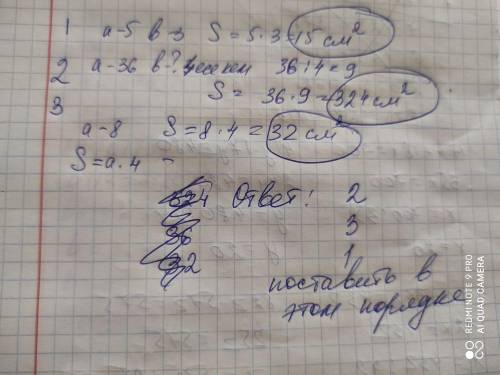 1 а-5 в-3 S=5·3=15 см²
2 а-36 в? 36:4=9
S= 36·9=324 см²
3
а-8 S=8·4=32 см²
S=а·4 =
Ответ: 2
3
1
поставить в
этом порядке
REDMI NOTE 9 PRO
AI QUAD CAMERA